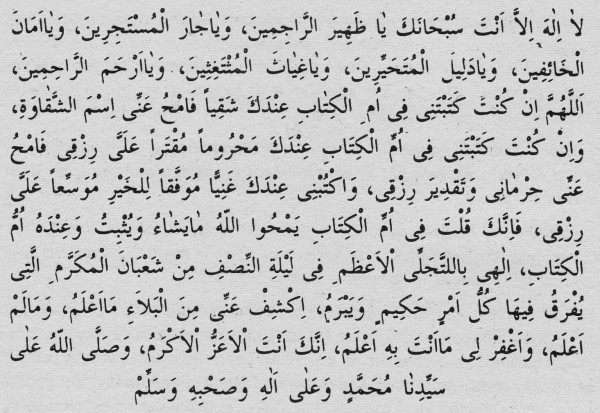 لاٰ اِلٰهَ اِلاَّ اَنْتَ سُبْحَانَكَ يٰا ظَهِيرَ الرَّاجِمِينَ، وَيٰاجٰارَ الْمُسْتَجِرِينَ، وَيٰااَمَانَ
الْخَائِفِينَ، وَيٰادَلِيلَ الْمُتَحَيِّرِينَ، وَيٰاغِيٰاثَ الْمُتْتَغِثِينَ، وَيٰااَرْحَمَ الرَّاحِمِينَ،
اَللّٰهُمَّ اِنْ كُنْتَ كَتَبْتَنِى فِى اُمِ الْكِتٰابِ عِنْدَكَ شَقِياً فَامْحُ عَنِّى اِسْمَ الشَّقٰاوَةِ،
وَاِنْ كُنْتَ كَتَبْتَنِى فِى اُمِّ الْكِتَابِ عِنْدَكَ مَحْرُوماً مُقْتَراً عَلَىَّ رِزْقِى فَامْحُ
عَنِّى حِرْمٰانِى وَتَقْدِيرَ رِزْقِى، وَاكْتُبْنِى عِنْدَكَ غَنِيًّا مُوَفَّقاً لِلْخَيْرِ مُوَسِّعاً عَلَىَّ
رِزْقِى، فَاِنَّكَ قُلْتَ فِى اُمِّ الْكِتَابِ يَمْحُوا اللّٰهُ مٰايَشٰاءُ وَيُثْبِتُ وَعِنْدَهُ اُمُّ
الْكِتَابِ، اِلٰهِى بِاللتَّجَلِّى اْلاَعْظَمِ فِى لَيْلَةِ النِّصْفِ مِنْ شَعْبَانَ الْمُكَرَّمِ الَّتِى
يُفْرَقُ فِيهَا كُلُّ اَمْرٍ حَكِيمٍ وَيَبْرَمُ، اِكْشِفْ عَنِّى مِنَ الْبَلاَءِ مَااَعْلَمُ، وَمَالَمْ
اَعْلَمُ، وَاَغْفِرْ لِى مَااَنْتَ بِهِ اَعْلَمُ، اِنَّكَ اَنْتَ اْلاَعَزُّ اْلاَكْرَمُ، وَصَلَّى اللّٰهُ عَلٰى
سَيِّدِنٰا مُحَمَّدٍ وَعَلٰى اٰلِهِ وَصَحْبِهِ وَسَلِّمْ